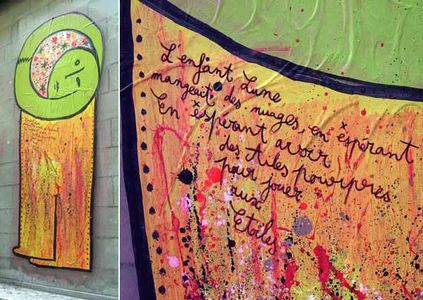 L'enfant Lune
mangeait des nuages, en espérant
En espérant avoir
des Ailes pourpres
pour jouer
aux
Etoiles